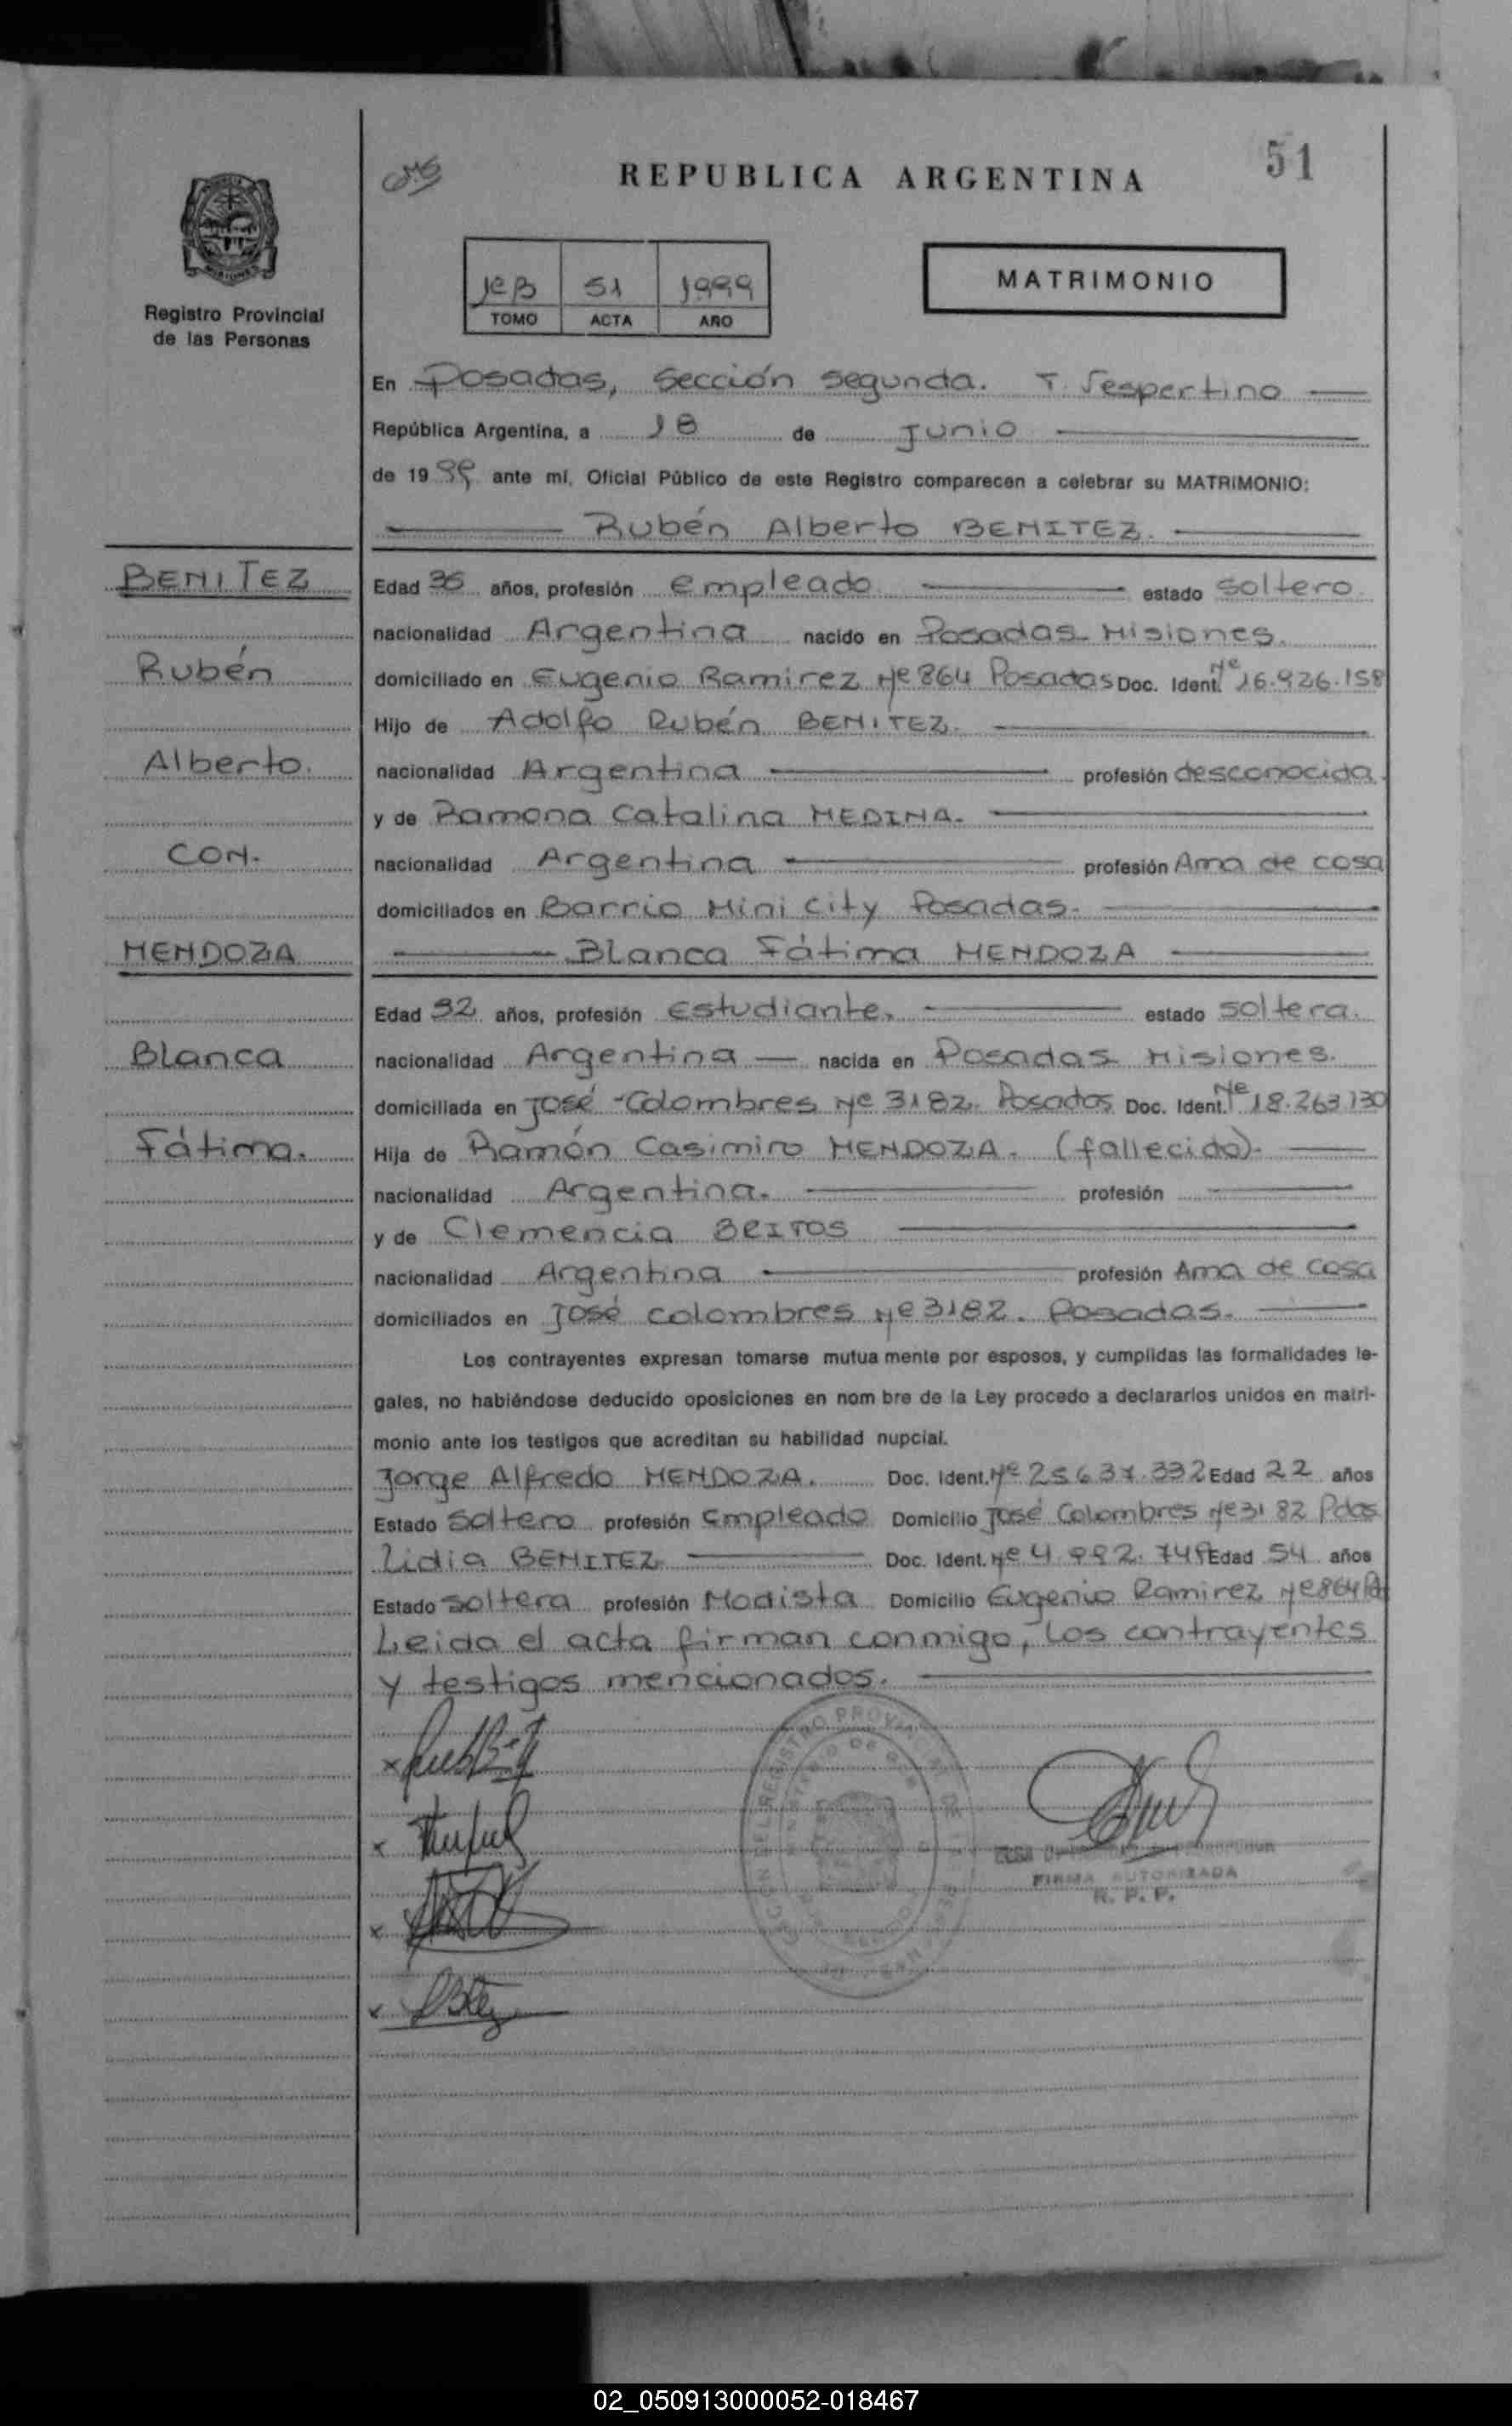 51
REPUBLICA ARGENTINA
MATRIMONIO
1º B 51 1999
TOMO ACTA AÑO
Registro Provincial
de las Personas
En Posadas, Sección Segunda. T. Vespertino
República Argentina, a 18 de Junio
de 1999 ante mí, Oficial Público de este Registro comparecen a celebrar su MATRIMONIO:
Rubén Alberto BENITEZ.
BENITEZ
Rubén
Alberto.
CON.
MENDOZA
Blanca
Fátima.
Edad 35 años, profesión empleado estado soltero.
nacionalidad Argentina nacido en Posadas Misiones.
domiciliado en Eugenio Ramirez Nº 864 Posadas Doc. Ident. Nº 16.926.158
Hijo de Adolfo Rubén BENITEZ.
nacionalidad Argentina profesión desconocida.
y de Ramona Catalina MEDINA.
nacionalidad Argentina profesión Ama de casa
domiciliados en Barrio Mini City Posadas.
Blanca Fátima MENDOZA
Edad 32 años, profesión estudiante. estado soltera.
nacionalidad Argentina nacida en Posadas Misiones.
domiciliada en José Colombres Nº 3182. Posadas Doc. Ident. Nº 18.263.130
Hija de Ramón Casimiro MENDOZA. (fallecido).
nacionalidad Argentina. profesión
y de Clemencia BRITOS
nacionalidad Argentina profesión Ama de casa
domiciliados en José Colombres Nº 3182. Posadas.
Los contrayentes expresan tomarse mutua mente por esposos, y cumplidas las formalidades le-
gales, no habiéndose deducido oposiciones en nom bre de la Ley procedo a declararlos unidos en matri-
monio ante los testigos que acreditan su habilidad nupcial.
Jorge Alfredo MENDOZA. Doc. Ident. Nº 25.637.332 Edad 22 años
Estado Soltero profesión empleado Domicilio José Colombres Nº 3182 Pdas
Lidia BENITEZ Doc. Ident. Nº 4.992.749 Edad 54 años
Estado soltera profesión Modista Domicilio Eugenio Ramirez Nº 864
Leida el acta firman conmigo, los contrayentes
y testigos mencionados.
FIRMA AUTORIZADA
R. P. P.
02_050913000052-018467